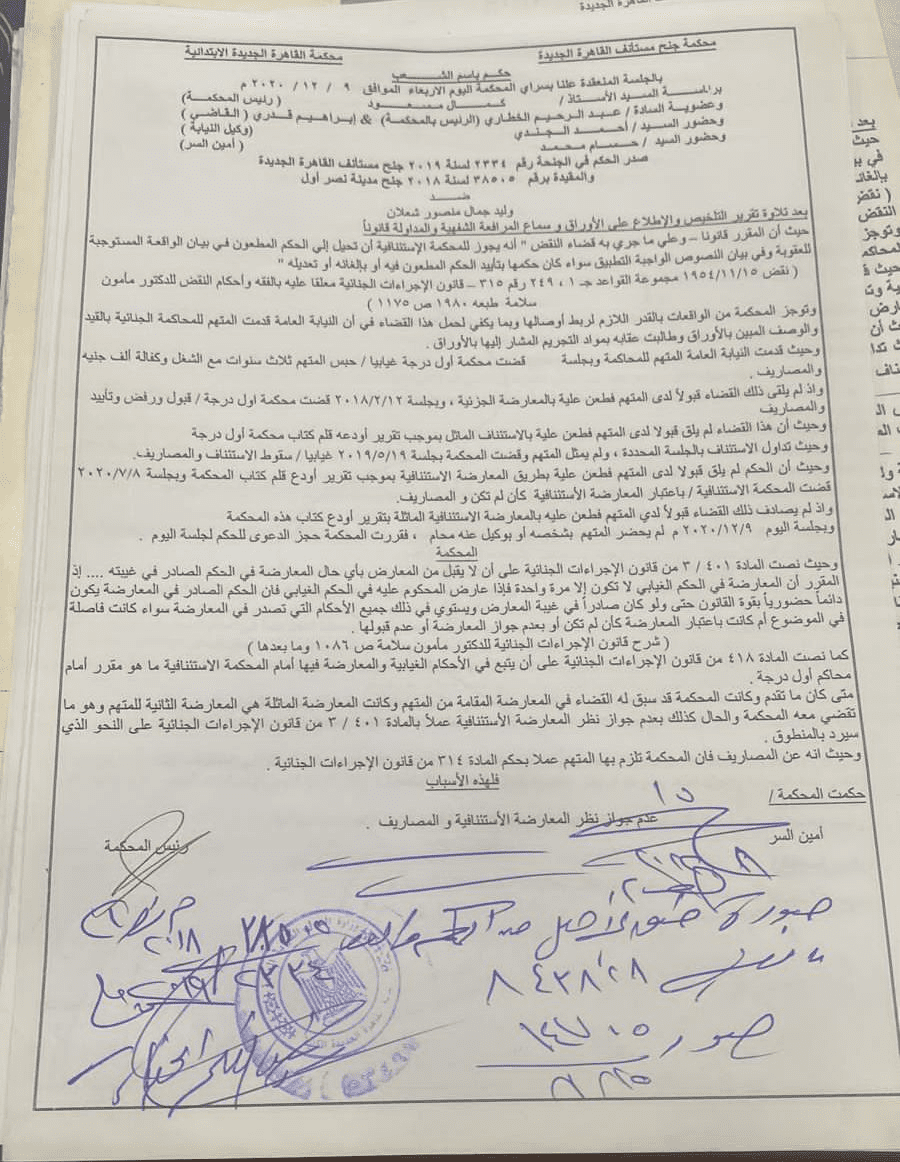 القاهرة الجديدة
محكمة جنح مستأنف القاهرة الجديدة
محكمة القاهرة الجديدة الابتدائية
حكم باسم الشعب
بالجلسة المنعقدة علنا بسراي المحكمة اليوم الاربعاء الموافق ٩ / ١٢ / ٢٠٢٠ م
برئاسة السيد الأستاذ / كمال مسعود ( رئيس المحكمة)
وعضوية السادة / عبد الرحيم الخطاري (الرئيس بالمحكمة) & إبراهيم قدري ( القاضي )
وحضور السيد / أحمد الجندي (وكيل النيابة )
وحضور السيد / حسام محمد ( أمين السر)
صدر الحكم في الجنحة رقم ٢٣٣٤ لسنة ٢٠١٩ جنح مستأنف القاهرة الجديدة
والمقيدة برقم ٣٨٥٠٥ لسنة ٢٠١٨ جنح مدينة نصر أول
ضد
وليد جمال منصور شعلان
بعد تلاوة تقرير التلخيص والإطلاع على الأوراق و سماع المرافعة الشفهية والمداولة قانوناً
حيث أن المقرر قانونا – وعلي ما جري به قضاء النقض " أنه يجوز للمحكمة الإستئنافية أن تحيل إلي الحكم المطعون في بيان الواقعة المستوجبة
للعقوبة وفي بيان النصوص الواجبة التطبيق سواء كان حكمها بتأييد الحكم المطعون فيه أو بإلغائه أو تعديله "
( نقض ١٩٥٤/١١/١٥ مجموعة القواعد جـ ١ ، ٢٤٩ رقم ٣١٥ – قانون الإجراءات الجنائية معلقا عليه بالفقه وأحكام النقض للدكتور مأمون
سلامة طبعه ١٩٨٠ ص ١١٧٥ )
وتوجز المحكمة من الواقعات بالقدر اللازم لربط أوصالها وبما يكفي لحمل هذا القضاء في أن النيابة العامة قدمت المتهم للمحاكمة الجنائية بالقيد
والوصف المبين بالأوراق وطالبت عقابه بمواد التجريم المشار إليها بالأوراق .
وحيث قدمت النيابة العامة المتهم للمحاكمة وبجلسة قضت محكمة أول درجة غيابيا / حبس المتهم ثلاث سنوات مع الشغل وكفالة ألف جنيه
والمصاريف .
واذ لم يلقى ذلك القضاء قبولاً لدى المتهم فطعن علية بالمعارضة الجزئية ، وبجلسة ٢٠١٨/٢/١٢ قضت محكمة اول درجة / قبول ورفض وتأييد
والمصاريف
وحيث أن هذا القضاء لم يلق قبولا لدى المتهم فطعن علية بالاستئناف الماثل بموجب تقرير أودعه قلم كتاب محكمة أول درجة
وحيث تداول الاستئناف بالجلسة المحددة ، ولم يمثل المتهم وقضت المحكمة بجلسة ٢٠١٩/٥/١٩ غيابيا / سقوط الاستئناف والمصاريف.
وحيث أن الحكم لم يلق قبولا لدى المتهم فطعن علية بطريق المعارضة الاستئنافية بموجب تقرير أودع قلم كتاب المحكمة وبجلسة ٢٠٢٠/٧/٨
قضت المحكمة الاستئنافية / باعتبار المعارضة الأستئنافية كأن لم تكن و المصاريف.
واذ لم يصادف ذلك القضاء قبولاً لدي المتهم فطعن عليه بالمعارضة الاستئنافية الماثلة بتقرير أودع كتاب هذه المحكمة
وبجلسة اليوم ٢٠٢٠/١٢/٩ م لم يحضر المتهم بشخصه أو بوكيل عنه محام ، فقررت المحكمة حجز الدعوى للحكم لجلسة اليوم .
المحكمة
وحيث نصت المادة ٤٠١ / ٣ من قانون الإجراءات الجنائية على أن لا يقبل من المعارض بأي حال المعارضة في الحكم الصادر في غيبته .... إذ
المقرر أن المعارضة في الحكم الغيابي لا تكون إلا مرة واحدة فإذا عارض المحكوم عليه في الحكم الغيابي فان الحكم الصادر في المعارضة يكون
دائماً حضورياً بقوة القانون حتى ولو كان صادراً في غيبة المعارض ويستوي في ذلك جميع الأحكام التي تصدر في المعارضة سواء كانت فاصلة
في الموضوع أم كانت باعتبار المعارضة كأن لم تكن أو بعدم جواز المعارضة أو عدم قبولها .
( شرح قانون الإجراءات الجنائية للدكتور مأمون سلامة ص ١٠٨٦ وما بعدها )
كما نصت المادة ٤١٨ من قانون الإجراءات الجنائية على أن يتبع في الأحكام الغيابية والمعارضة فيها أمام المحكمة الاستئنافية ما هو مقرر أمام
محاكم أول درجة .
متى كان ما تقدم وكانت المحكمة قد سبق له القضاء في المعارضة المقامة من المتهم وكانت المعارضة الماثلة هي المعارضة الثانية للمتهم وهو ما
تقضي معه المحكمة والحال كذلك بعدم جواز نظر المعارضة الأستئنافية عملاً بالمادة ٤٠١ / ٣ من قانون الإجراءات الجنائية على النحو الذي
سيرد بالمنطوق .
وحيث انه عن المصاريف فان المحكمة تلزم بها المتهم عملا بحكم المادة ٣١٤ من قانون الإجراءات الجنائية .
فلهذه الأسباب
حكمت المحكمة /
عدم جواز نظر المعارضة الأستئنافية و المصاريف .
أمين السر
رئيس المحكمة
صورة طبق الأصل من الحكم
٢٠١٨
٢٣٣٤
صور